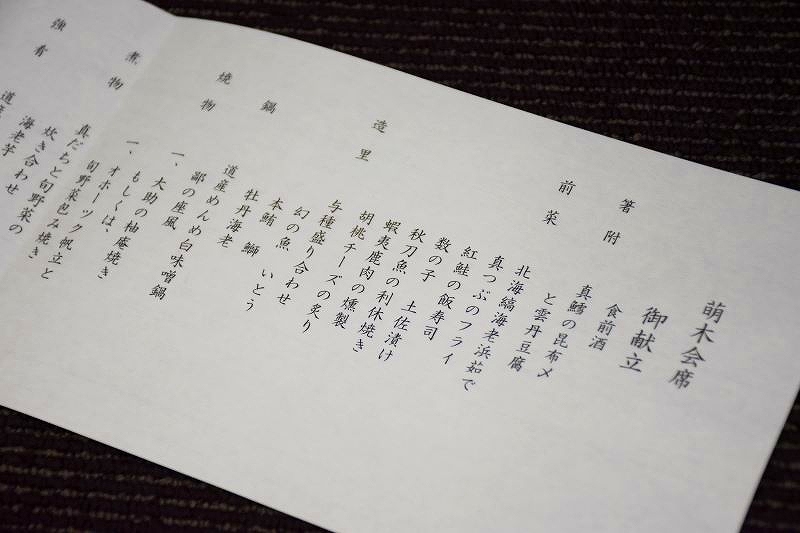 萌木会席
御献立
食前酒
箸附
真鱈の昆布〆
と雲丹豆腐
前菜
北海縞海老浜茹で
真つぶのフライ
紅鮭の飯寿司
数の子 土佐漬け
秋刀魚の利休焼き
蝦夷鹿肉の燻製
胡桃チーズの炙り
造里
与種盛り合わせ
幻の魚 いとう
本鮪 鰤
牡丹海老
鍋
道産めんめ白味噌鍋
鄙の座風
焼物
一、大助の柚庵焼き
もしくは、
一、オホーツク帆立と
旬野菜包み焼き
煮物
真だちと旬野菜の
炊き合わせ
海老芋
強肴
道産